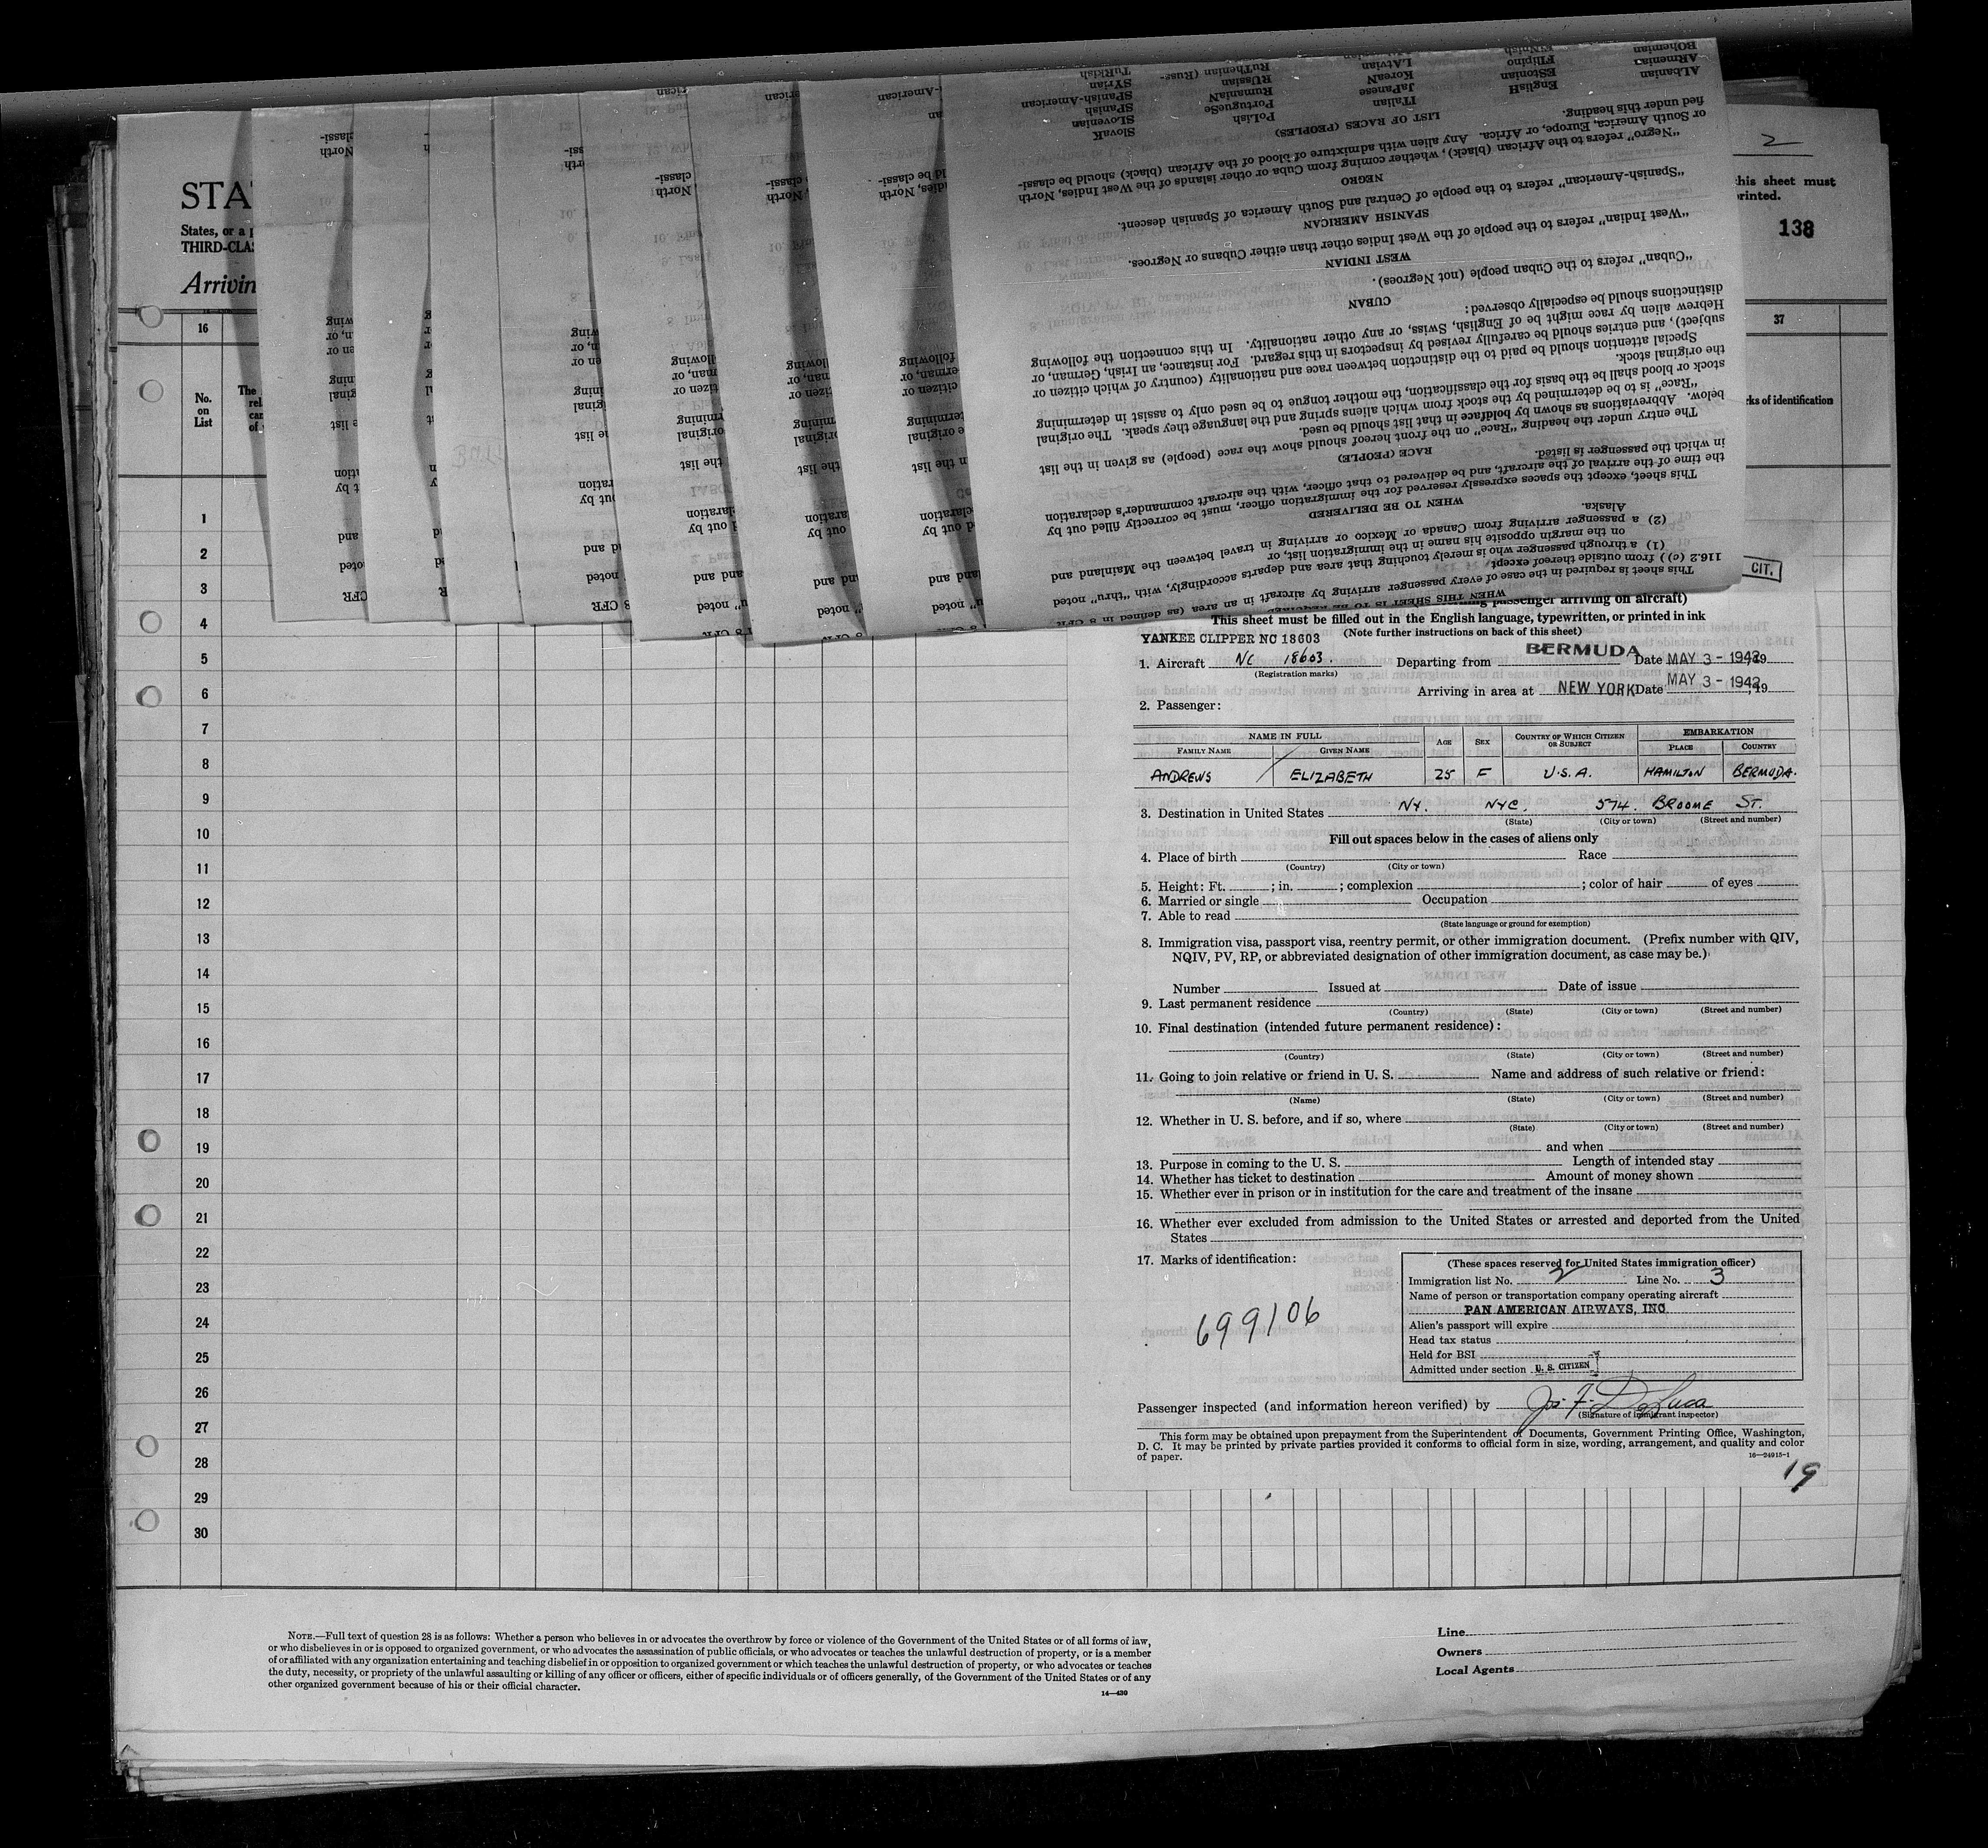 STA
States, or a p
THIRD-CLAS
Arrivin
2
this sheet must
printed.
138
16
37
No.
on
List
The
rel
can
of
rks of identification
CIT.
1
2
3
4
5
6
7
8
9
10
11
12
13
14
15
16
17
18
19
20
21
22
23
24
25
26
27
28
29
30
WHEN THIS SHEET IS TO BE REQUIRED
This sheet is required in the case of every passenger arriving by aircraft in an area (as defined in 8 CFR
116.2 (c)) from outside thereof except
(1) a through passenger who is merely touching that area and departs accordingly, with "thru" noted
on the margin opposite his name in the immigration list, or
(2) a passenger arriving from Canada or Mexico or arriving in travel between the Mainland and
Alaska.
WHEN TO BE DELIVERED
This sheet, except the spaces expressly reserved for the immigration officer, must be correctly filled out by
the time of the arrival of the aircraft, and be delivered to that officer, with the aircraft commander's declaration
in which the passenger is listed.
RACE (PEOPLE)
The entry under the heading "Race" on the front hereof should show the race (people) as given in the list
below. Abbreviations as shown by boldface in that list should be used.
"Race" is to be determined by the stock from which aliens spring and the language they speak. The original
stock or blood shall be the basis for the classification, the mother tongue to be used only to assist in determining
the original stock.
Special attention should be paid to the distinction between race and nationality (country of which citizen or
subject), and entries should be carefully revised by inspectors in this regard. For instance, an Irish, German, or
Hebrew alien by race might be of English, Swiss, or any other nationality. In this connection the following
distinctions should be especially observed:
CUBAN
"Cuban" refers to the Cuban people (not Negroes).
WEST INDIAN
"West Indian" refers to the people of the West Indies other than either Cubans or Negroes.
SPANISH AMERICAN
"Spanish-American" refers to the people of Central and South America of Spanish descent.
NEGRO
"Negro" refers to the African (black), whether coming from Cuba or other islands of the West Indies, North
or South America, Europe, or Africa. Any alien with admixture of blood of the African (black) should be classi-
fied under this heading.
LIST OF RACES (PEOPLES)
ALbanian EnglisH ITalian PoLish SlovaK
ARmenian EStonian JaPanese PortugueSe SLovenian
BOhemian FIlipino KoreaN RumaniaN SPanish
FiNnish LAtvian RUssian SPanish-American
RuThenian (Russ- SYrian
TuRkish
passenger arriving on aircraft)
This sheet must be filled out in the English language, typewritten, or printed in ink
(Note further instructions on back of this sheet)
YANKEE CLIPPER NC 18603
1. Aircraft NC 18603. Departing from BERMUDA Date MAY 3 - 1942, 19
(Registration marks)
Arriving in area at NEW YORK Date MAY 3 - 1942, 19
2. Passenger:
NAME IN FULL AGE SEX COUNTRY OF WHICH CITIZEN OR SUBJECT EMBARKATION
FAMILY NAME GIVEN NAME PLACE COUNTRY
ANDREWS / ELIZABETH 25 F U.S.A. HAMILTON BERMUDA.
3. Destination in United States NY. NYC. 574. BROOME ST.
(State) (City or town) (Street and number)
Fill out spaces below in the cases of aliens only
4. Place of birth Race
(Country) (City or town)
5. Height: Ft. ; in. ; complexion ; color of hair of eyes
6. Married or single Occupation
7. Able to read
(State language or ground for exemption)
8. Immigration visa, passport visa, reentry permit, or other immigration document. (Prefix number with QIV,
NQIV, PV, RP, or abbreviated designation of other immigration document, as case may be.)
Number Issued at Date of issue
9. Last permanent residence
(Country) (State) (City or town) (Street and number)
10. Final destination (intended future permanent residence):
(Country) (State) (City or town) (Street and number)
11. Going to join relative or friend in U. S. Name and address of such relative or friend:
(Name) (State) (City or town) (Street and number)
12. Whether in U. S. before, and if so, where
(State) (City or town) (Street and number)
and when
13. Purpose in coming to the U. S. Length of intended stay
14. Whether has ticket to destination Amount of money shown
15. Whether ever in prison or in institution for the care and treatment of the insane
16. Whether ever excluded from admission to the United States or arrested and deported from the United
States
17. Marks of identification:
699106
(These spaces reserved for United States immigration officer)
Immigration list No. 2 Line No. 3
Name of person or transportation company operating aircraft
PAN AMERICAN AIRWAYS, INC
Alien's passport will expire
Head tax status
Held for BSI
Admitted under section U. S. CITIZEN
Passenger inspected (and information hereon verified) by Jos. F. DeLuca
(Signature of immigrant inspector)
This form may be obtained upon prepayment from the Superintendent of Documents, Government Printing Office, Washington,
D. C. It may be printed by private parties provided it conforms to official form in size, wording, arrangement, and quality and color
of paper.
16—24915-1
19
NOTE.—Full text of question 28 is as follows: Whether a person who believes in or advocates the overthrow by force or violence of the Government of the United States or of all forms of law,
or who disbelieves in or is opposed to organized government, or who advocates the assassination of public officials, or who advocates or teaches the unlawful destruction of property, or is a member
of or affiliated with any organization entertaining and teaching disbelief in or opposition to organized government or which teaches the unlawful destruction of property, or who advocates or teaches
the duty, necessity, or propriety of the unlawful assaulting or killing of any officer or officers, either of specific individuals or of officers generally, of the Government of the United States or of any
other organized government because of his or their official character.
14—430
Line
Owners
Local Agents